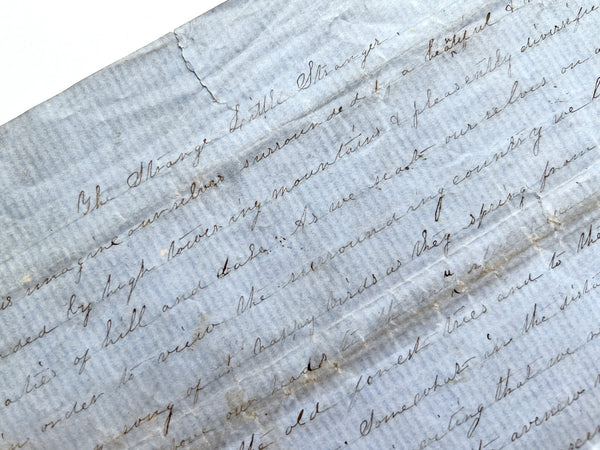 The Strange Little Stranger.
us imagine ourselves surrounded by a beautiful &
ded by high towering mountains & pleasently diversifie
alties of hill and dale. As we seat ourselves on a
in order to view the surrounding country we
song of happy birds as they spring from
above our heads to the
the old forest trees and to the
Somewhat in the dista
inviting that we
avenew